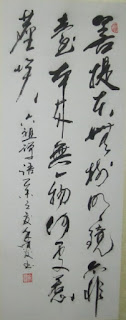 菩提本無樹明鏡亦非
臺本來無一物何處惹
塵埃
六祖禪語